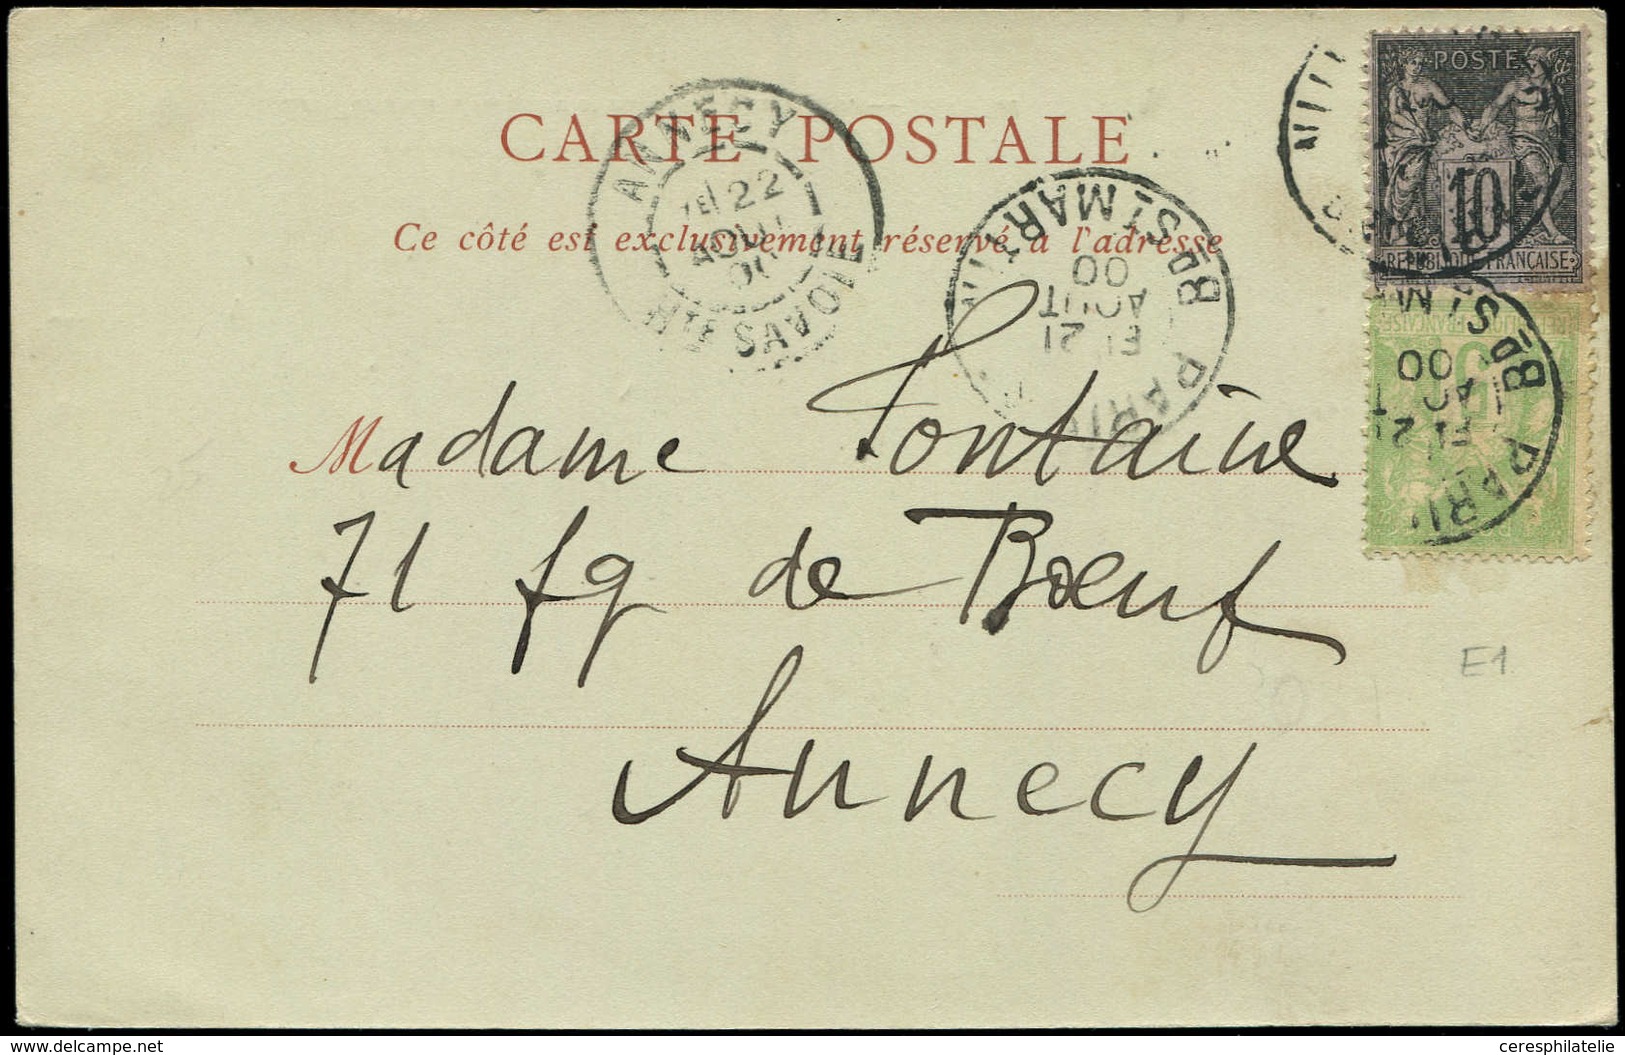 CARTE POSTALE
Ce côté est exclusivement réservé à l'adresse
ANNECY
1E 22
AOUT
00
HTE SAVOIE
PARIS
Bd St MARTIN
E1 21
AOUT
00
POSTE
10
REPUBLIQUE FRANÇAISE
PARIS
Bd St
21
00
5
Madame Fontaine
71 fg de Bœuf
Annecy
E1
www.delcampe.net
ceresphilatelie